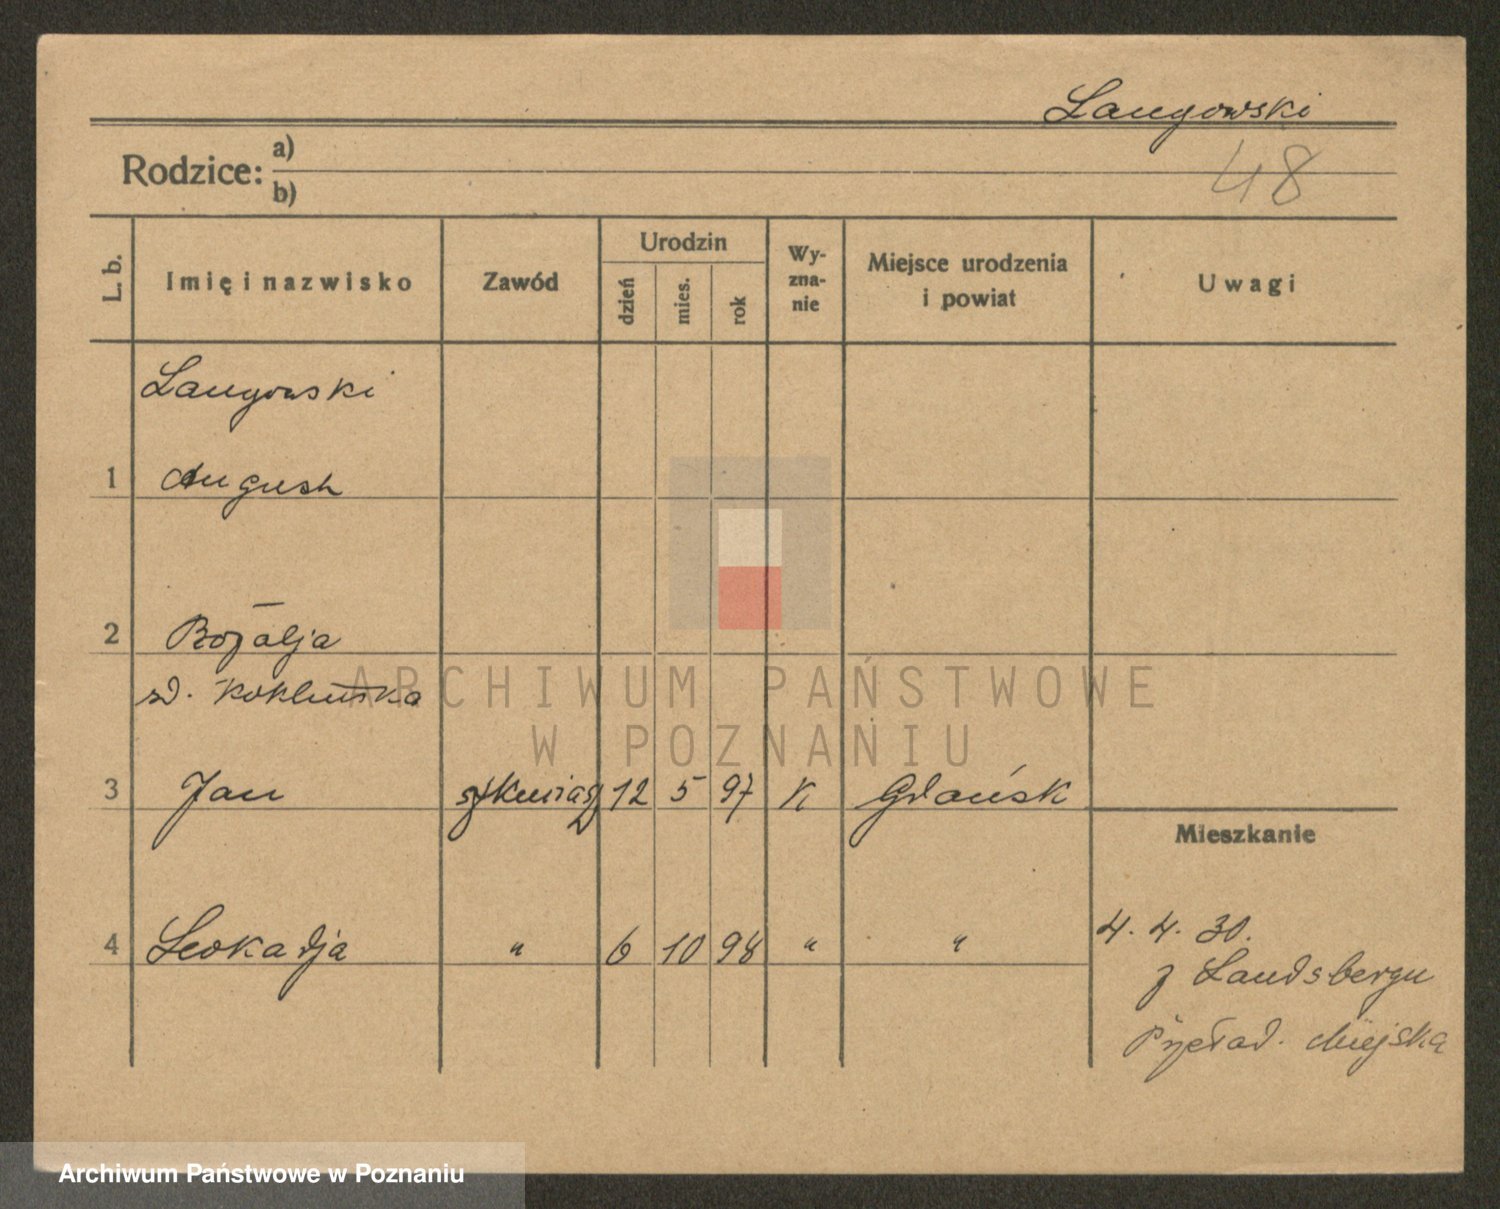 Langowski
48
Rodzice: a)
b)
L. b. Imię i nazwisko Zawód Urodzin dzień mies. rok Wy-zna-nie Miejsce urodzenia i powiat Uwagi
Langowski
1 August
2 Rozalja
zd.
3 Jan 12 5 97 K Gdańsk
Mieszkanie
4 Leokadja " 6 10 98 " "
4. 4. 30.
z Landsbergu
Miejska
ARCHIWUM PAŃSTWOWE
W POZNANIU
Archiwum Państwowe w Poznaniu